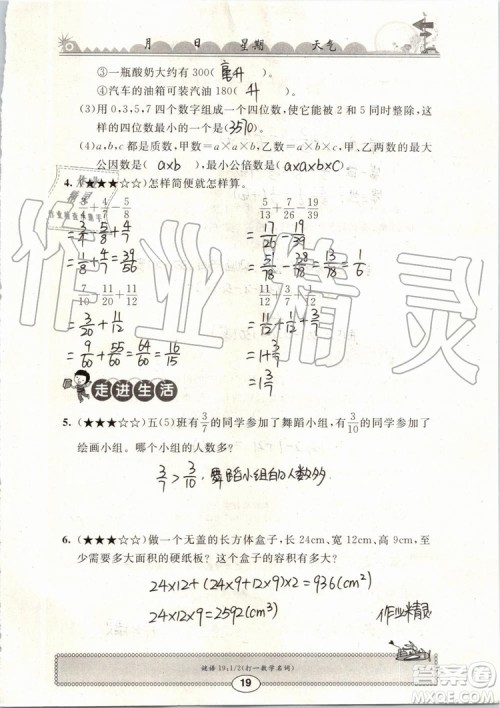 月 日 星期 天气
③一瓶酸奶大约有300(毫升)。
④汽车的油箱可装汽油180(升)。
(3)用0,3,5,7四个数字组成一个四位数,使它能被2和5同时整除,这
样的四位数最小的一个是(3570)。
(4)a,b,c都是质数,甲数=a×a×b,乙数=a×b×c,甲、乙两数的最大
公因数是(a×b),最小公倍数是(a×a×b×c)。
4.(★★★☆☆)怎样简便就怎样算。
5/13+7/26-19/39
=17/26-19/39
=51/78-38/78=13/78=1/6
+11/12
=3/20+11/12
=9/60+55/60=64/60=16/15
=1+3/7
=1 3/7
走进生活
5.(★★★☆☆)五(5)班有3/7的同学参加了舞蹈小组,有3/10的同学参加了
绘画小组。哪个小组的人数多?
3/7>3/10,舞蹈小组的人数多
6.(★★★☆☆)做一个无盖的长方体盒子,长24cm、宽12cm、高9cm,至
少需要多大面积的硬纸板?这个盒子的容积有多大?
24×12+(24×9+12×9)×2=936(cm²)
24×12×9=2592(cm³)
作业精灵
谜语10:1/2(打一数学名词)
19
作业精灵
答案圈